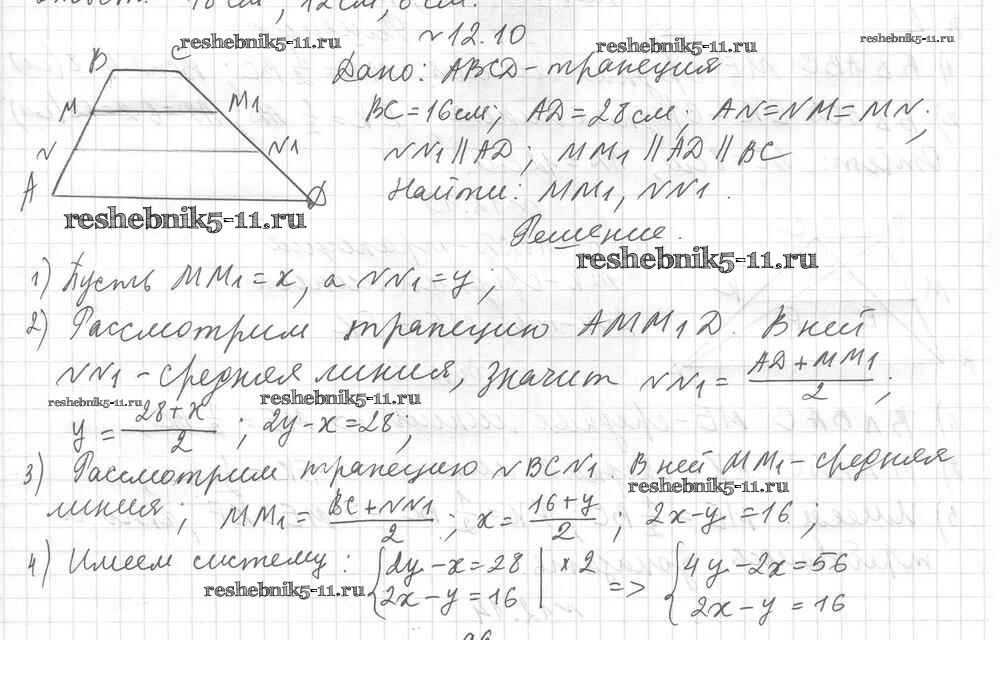 18 см, 12 см, 8 см.
№12.10
reshebnik5-11.ru reshebnik5-11.ru reshebnik5-11.ru
B C
M M1
N N1
A D
Дано: ABCD - трапеция
BC = 16 см; AD = 28 см; AN = NM = MN;
NN1 || AD; MM1 || AD || BC
Найти: MM1, NN1.
reshebnik5-11.ru
Решение.
reshebnik5-11.ru
1) Пусть MM1 = x, а NN1 = y;
2) Рассмотрим трапецию AMM1D. В ней
NN1 - средняя линия, значит NN1 = (AD + MM1)/2;
reshebnik5-11.ru reshebnik5-11.ru
y = (28 + x)/2; 2y - x = 28;
3) Рассмотрим трапецию NBCN1. В ней MM1 - средняя
reshebnik5-11.ru
линия; MM1 = (BC + NN1)/2; x = (16 + y)/2; 2x - y = 16;
4) Имеем систему: {2y - x = 28 | × 2 => {4y - 2x = 56
reshebnik5-11.ru
2x - y = 16 2x - y = 16